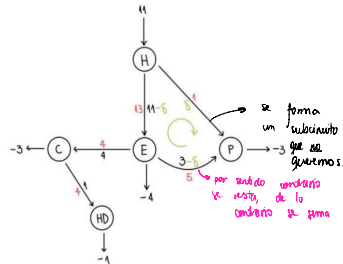 11
H
13 11-δ
δ 1
se forma
un subcircuito
que no
queremos
-3
C
4
4
E
3-δ
5
P
-3
por sentido contrario
se resta, de lo
contrario se suma
-4
4 1
HD
-1